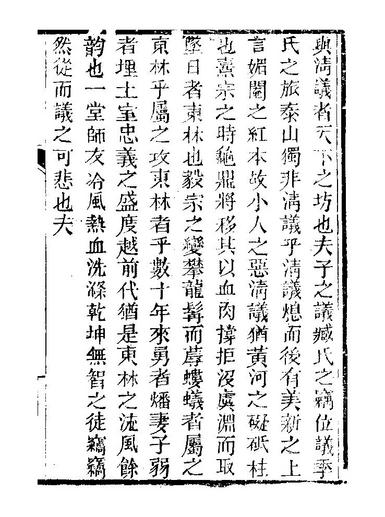 與清議者天下之坊也夫子之議臧氏之竊位議季
氏之旅泰山獨非清議乎清議熄而後有美新之上
言媚閹之紅本故小人之惡清議猶黃河之礙砥柱
也熹宗之時龜鼎將移其以血肉撐拒沒虞淵而取
墜日者東林也毅宗之變攀龍髯而蓐螻蟻者屬之
東林乎屬之攻東林者乎數十年來勇者燔妻子弱
者埋土室忠義之盛度越前代猶是東林之流風餘
韵也一堂師友冷風熱血洗滌乾坤無智之徒竊竊
然從而議之可悲也夫